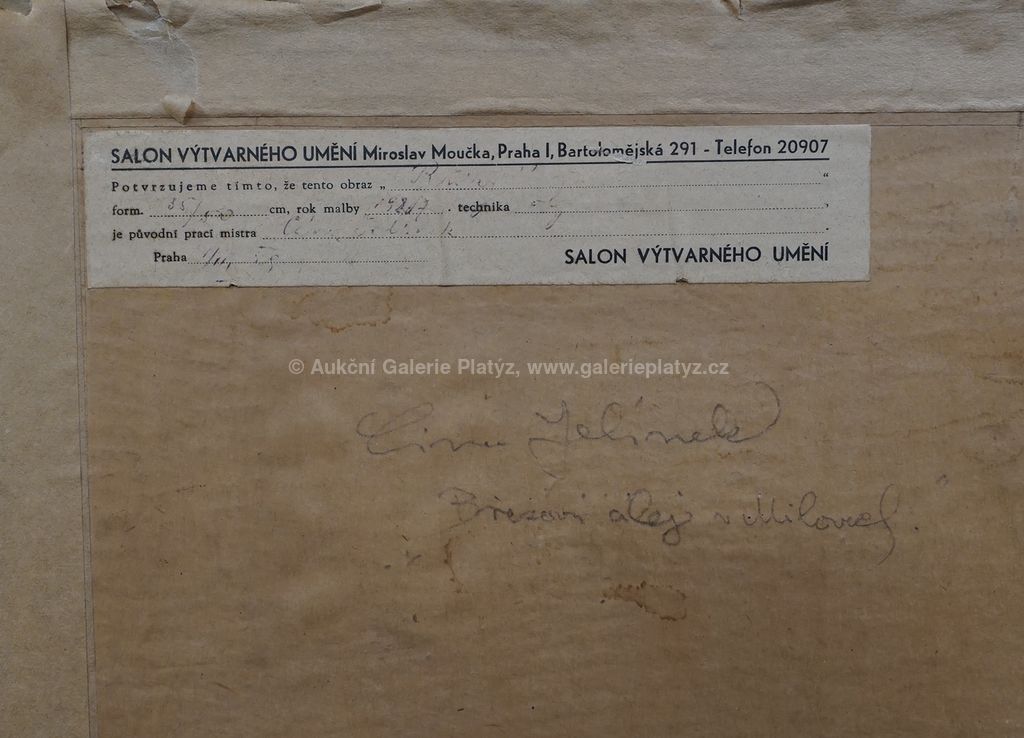 SALON VÝTVARNÉHO UMĚNÍ Miroslav Moučka, Praha I, Bartolomějská 291 - Telefon 20907
Potvrzujeme tímto, že tento obraz „ “
form. 35/ cm, rok malby technika
je původní prací mistra
Praha
SALON VÝTVARNÉHO UMĚNÍ
© Aukční Galerie Platýz, www.galerieplatyz.cz
Jelínek
Březová alej v Milovech.“